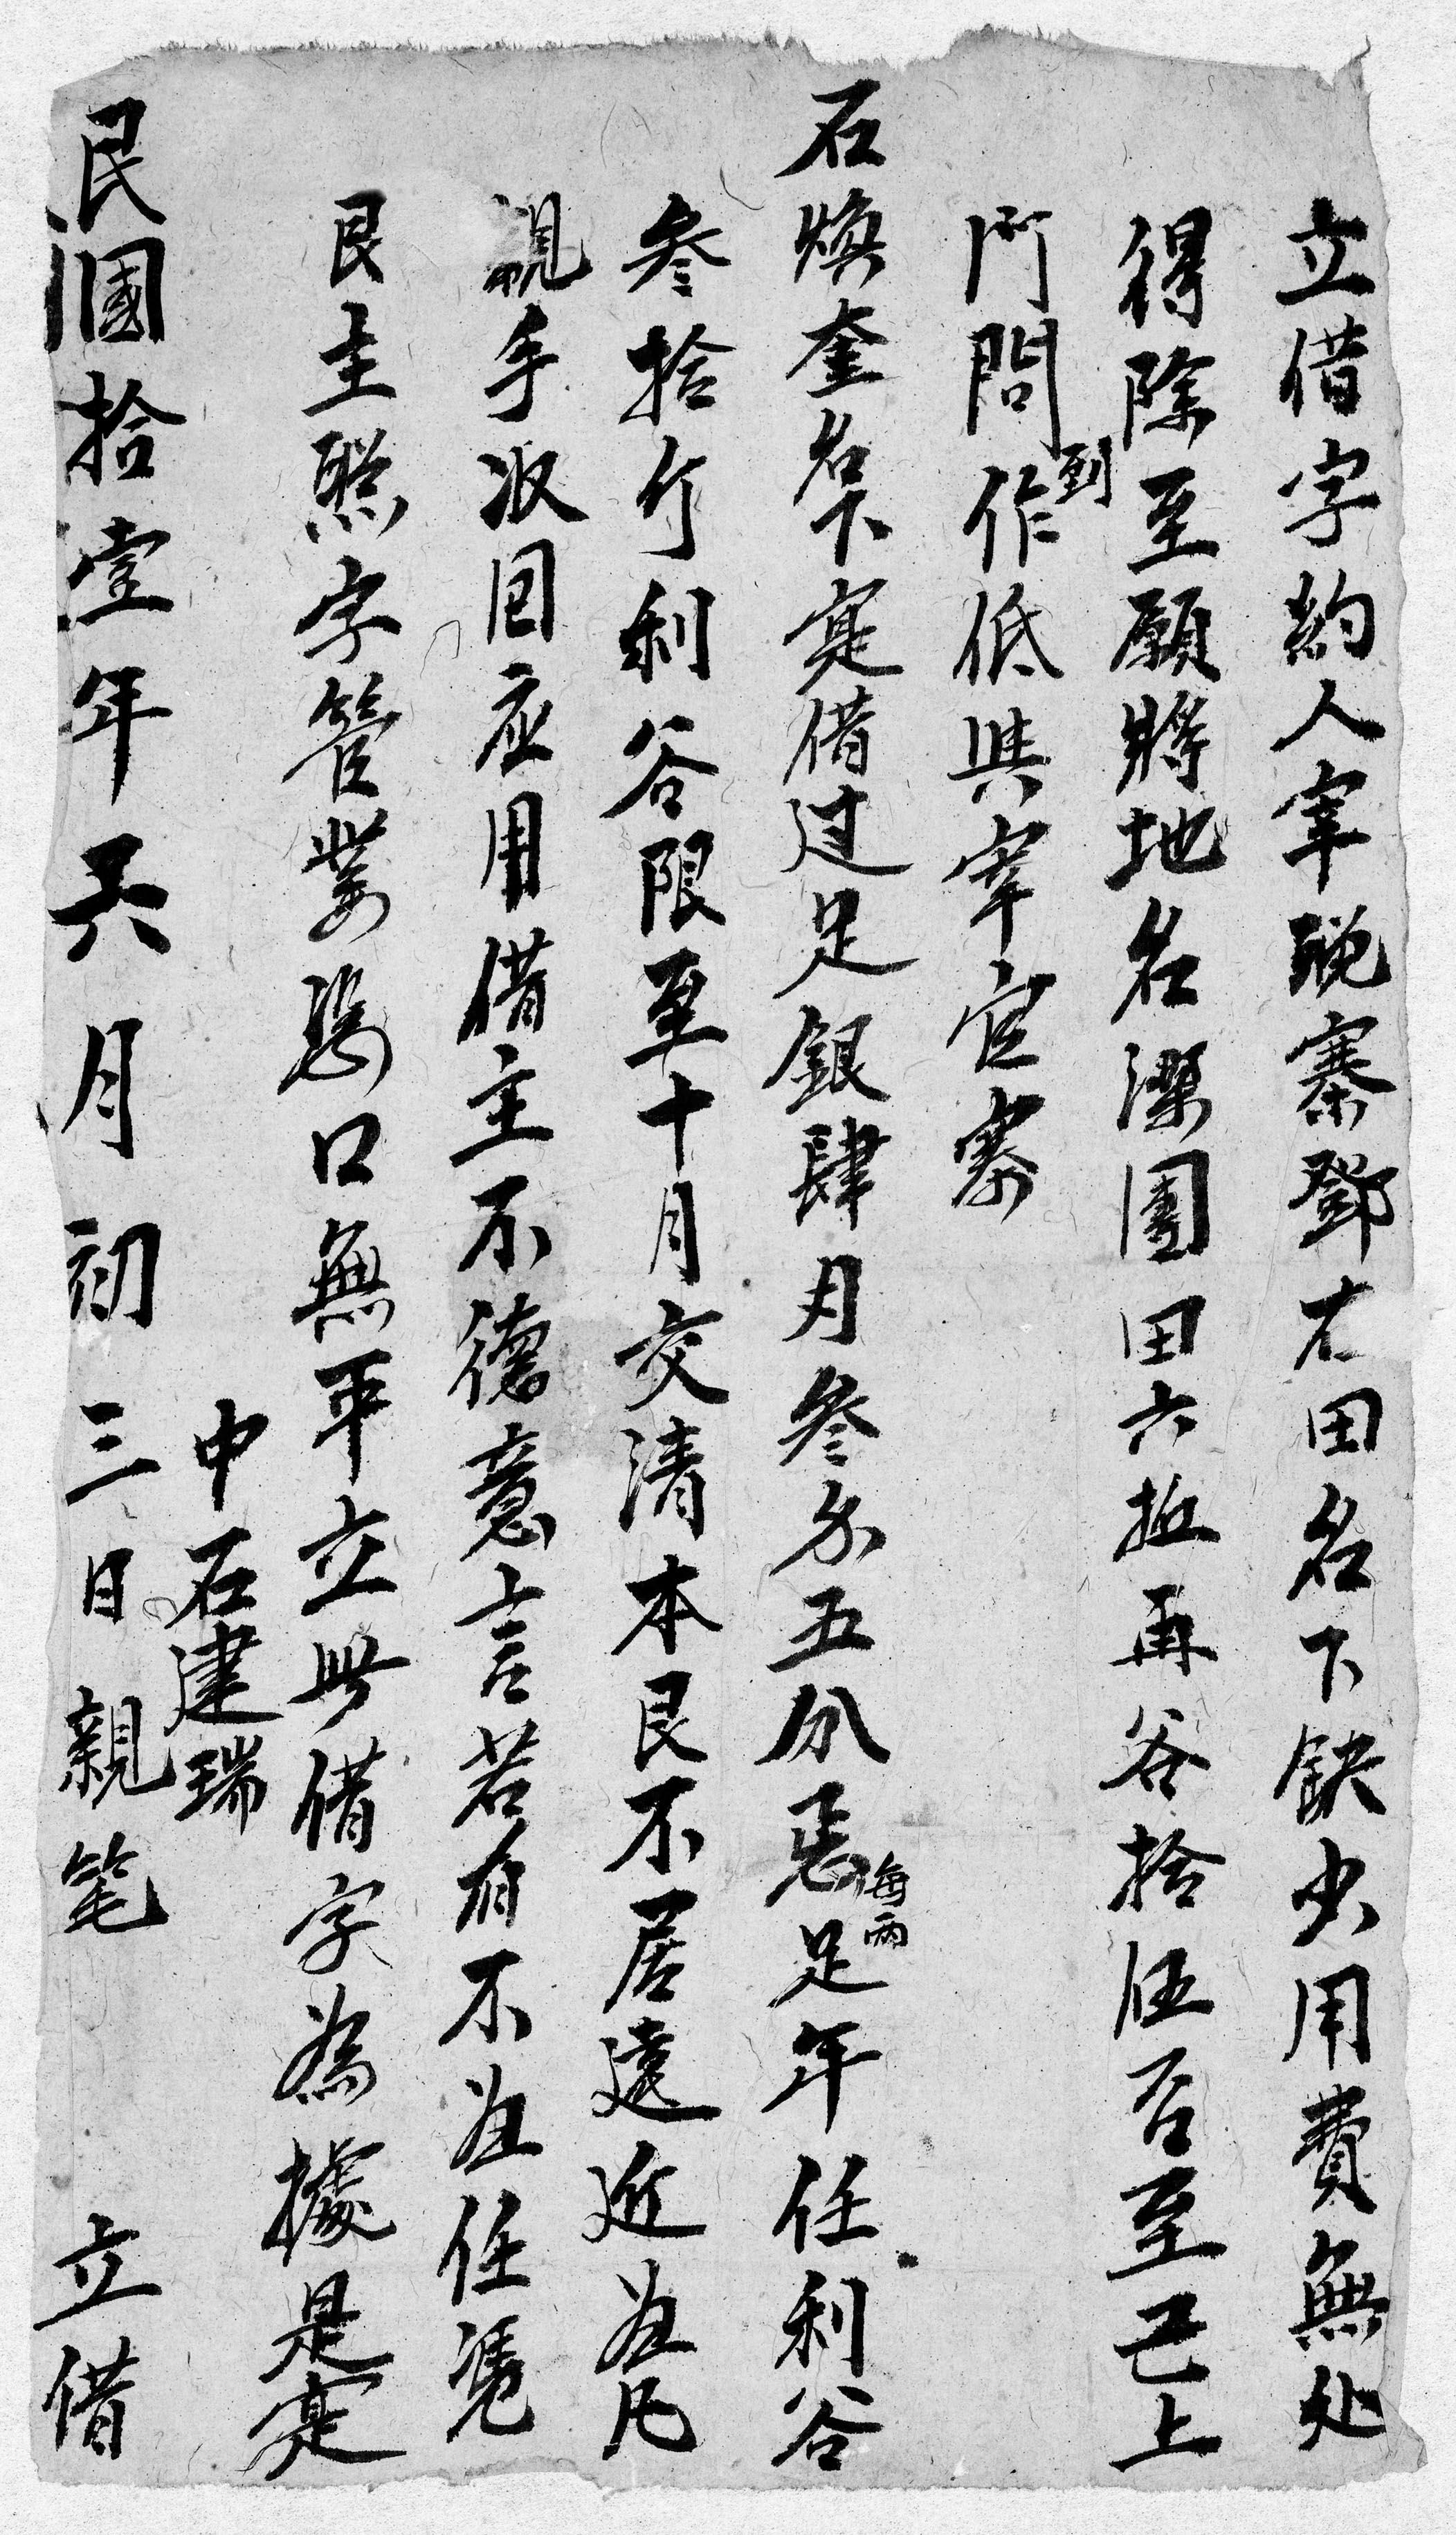 立借字約人宰䏈寨鄧右田名下缺少用費無处
得除至願將地名㵮團田六坵再谷拾伍石至己上
門問到作低與宰官寨
石煥奎名下寔借过足銀肆月叁尔五分悉每兩足年任利谷
叁拾斤利谷限至十月交清本艮不居遠近為凡
親手収回应用借主不德意言若有不為任凴
艮主照字管業為口無平立此借字為據是寔
中石建瑞
民國拾壹年六月初三日親笔立借